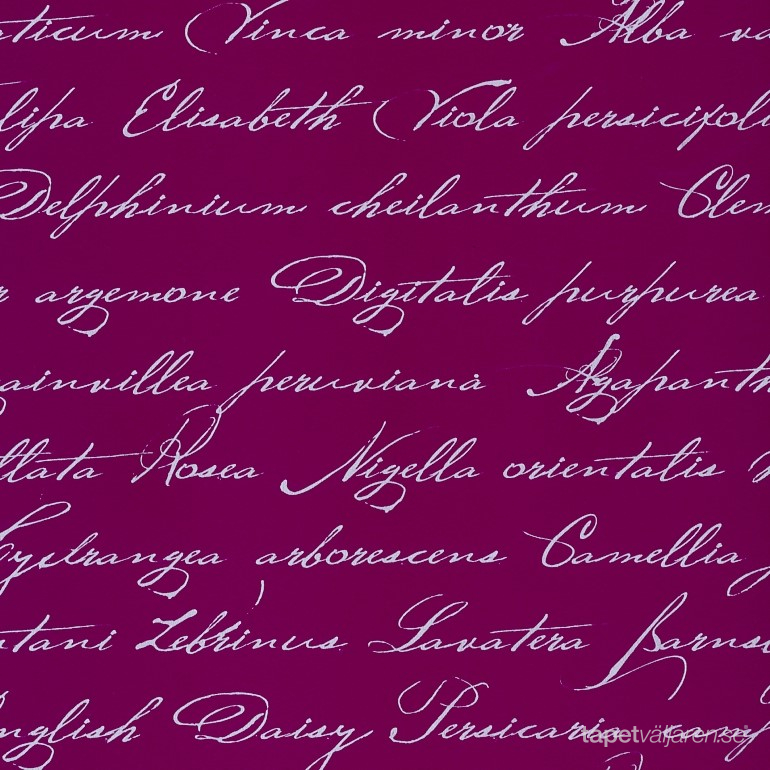 rticum Vinca minor Alba va
lipa Elisabeth Viola persicifoli
Delphinium cheilanthum Clem
r argemone Digitalis purpurea
ainvillea peruviana Agapanth
llata Rosea Nigella orientalis
ydrangea arborescens Camellia j
ntani Zebrinus Lavatera Barnsl
nglish Daisy Persicaria camp
tapetväljaren.se